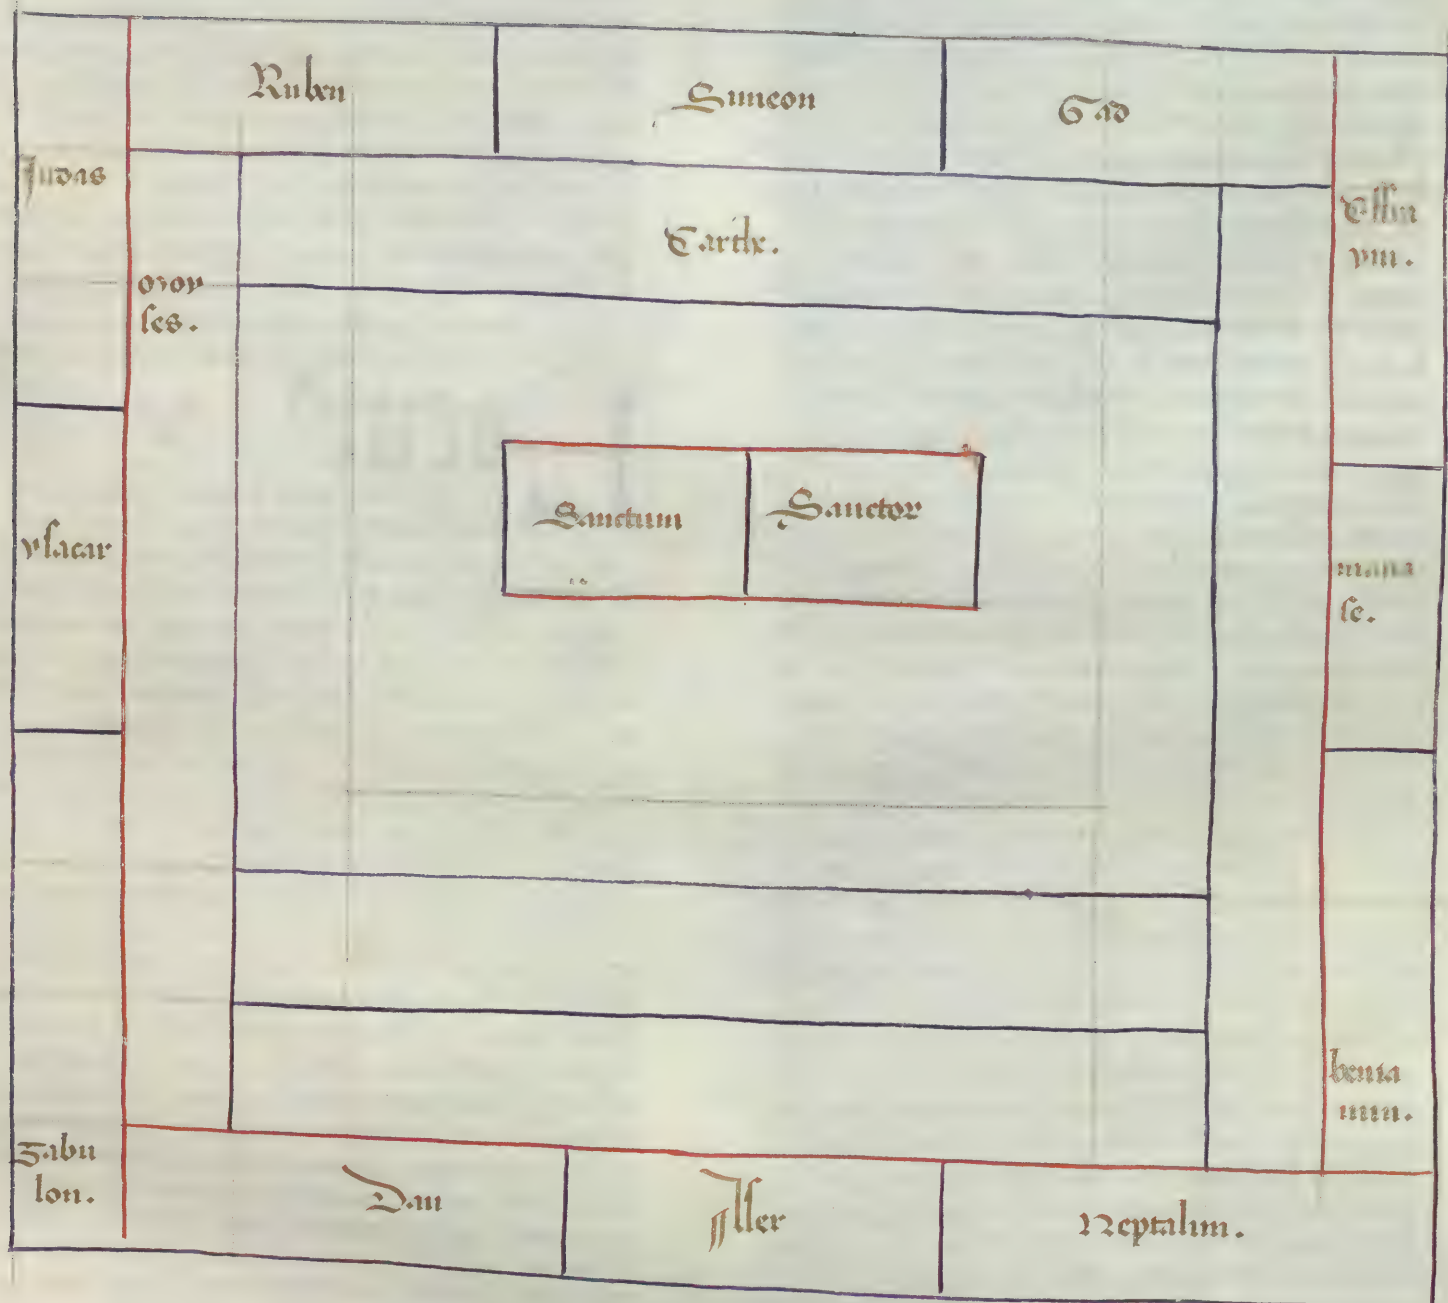 Ruben
Simeon
Gad
Judas
Effra
ym.
Carihe.
moy
ses.
Sanctum
Sanctor
ysacar
mana
se.
benia
min.
zabu
lon.
Dan
Asser
Neptalim.